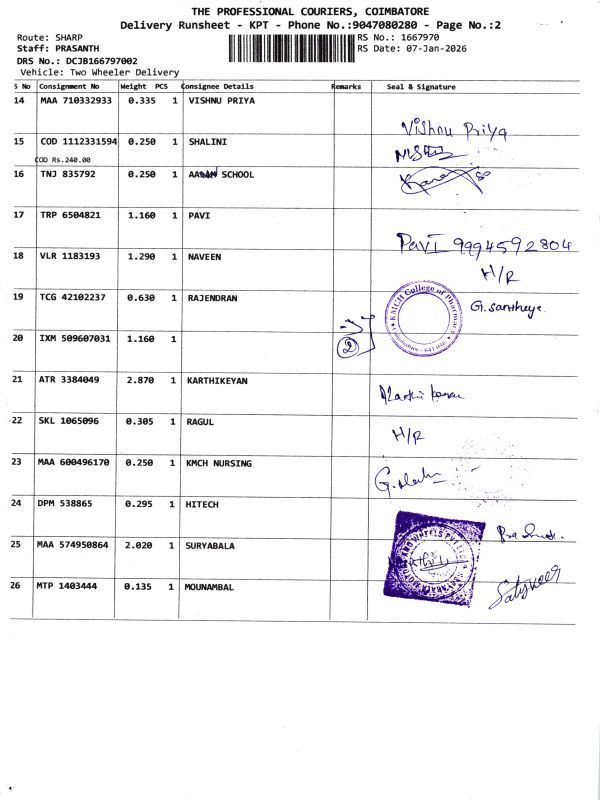 THE PROFESSIONAL COURIERS, COIMBATORE
Delivery Runsheet - KPT - Phone No.:9047080280 - Page No.:2
Route: SHARP
RS No.: 1667970
Staff: PRASANTH
RS Date: 07-Jan-2026
DRS No.: DCJB166797002
Vehicle: Two Wheeler Delivery
S No Consignment No Weight PCS Consignee Details Remarks Seal & Signature
14 MAA 710332933 0.335 1 VISHNU PRIYA
Vishnu Priya
15 COD 1112331594 0.250 1 SHALINI
COD Rs.240.00
16 TNJ 835792 0.250 1 SCHOOL
17 TRP 6504821 1.160 1 PAVI
Pavi 9994592804
18 VLR 1183193 1.290 1 NAVEEN
H/R
19 TCG 42102237 0.630 1 RAJENDRAN
KMCH College of Pharmacy
G. Santhiya
20 IXM 509607031 1.160 1
2
21 ATR 3384049 2.870 1 KARTHIKEYAN
Karthikeyan
22 SKL 1065096 0.305 1 RAGUL
H/R
23 MAA 600496170 0.250 1 KMCH NURSING
24 DPM 538865 0.295 1 HITECH
25 MAA 574950864 2.020 1 SURYABALA
26 MTP 1403444 0.135 1 MOUNAMBAL